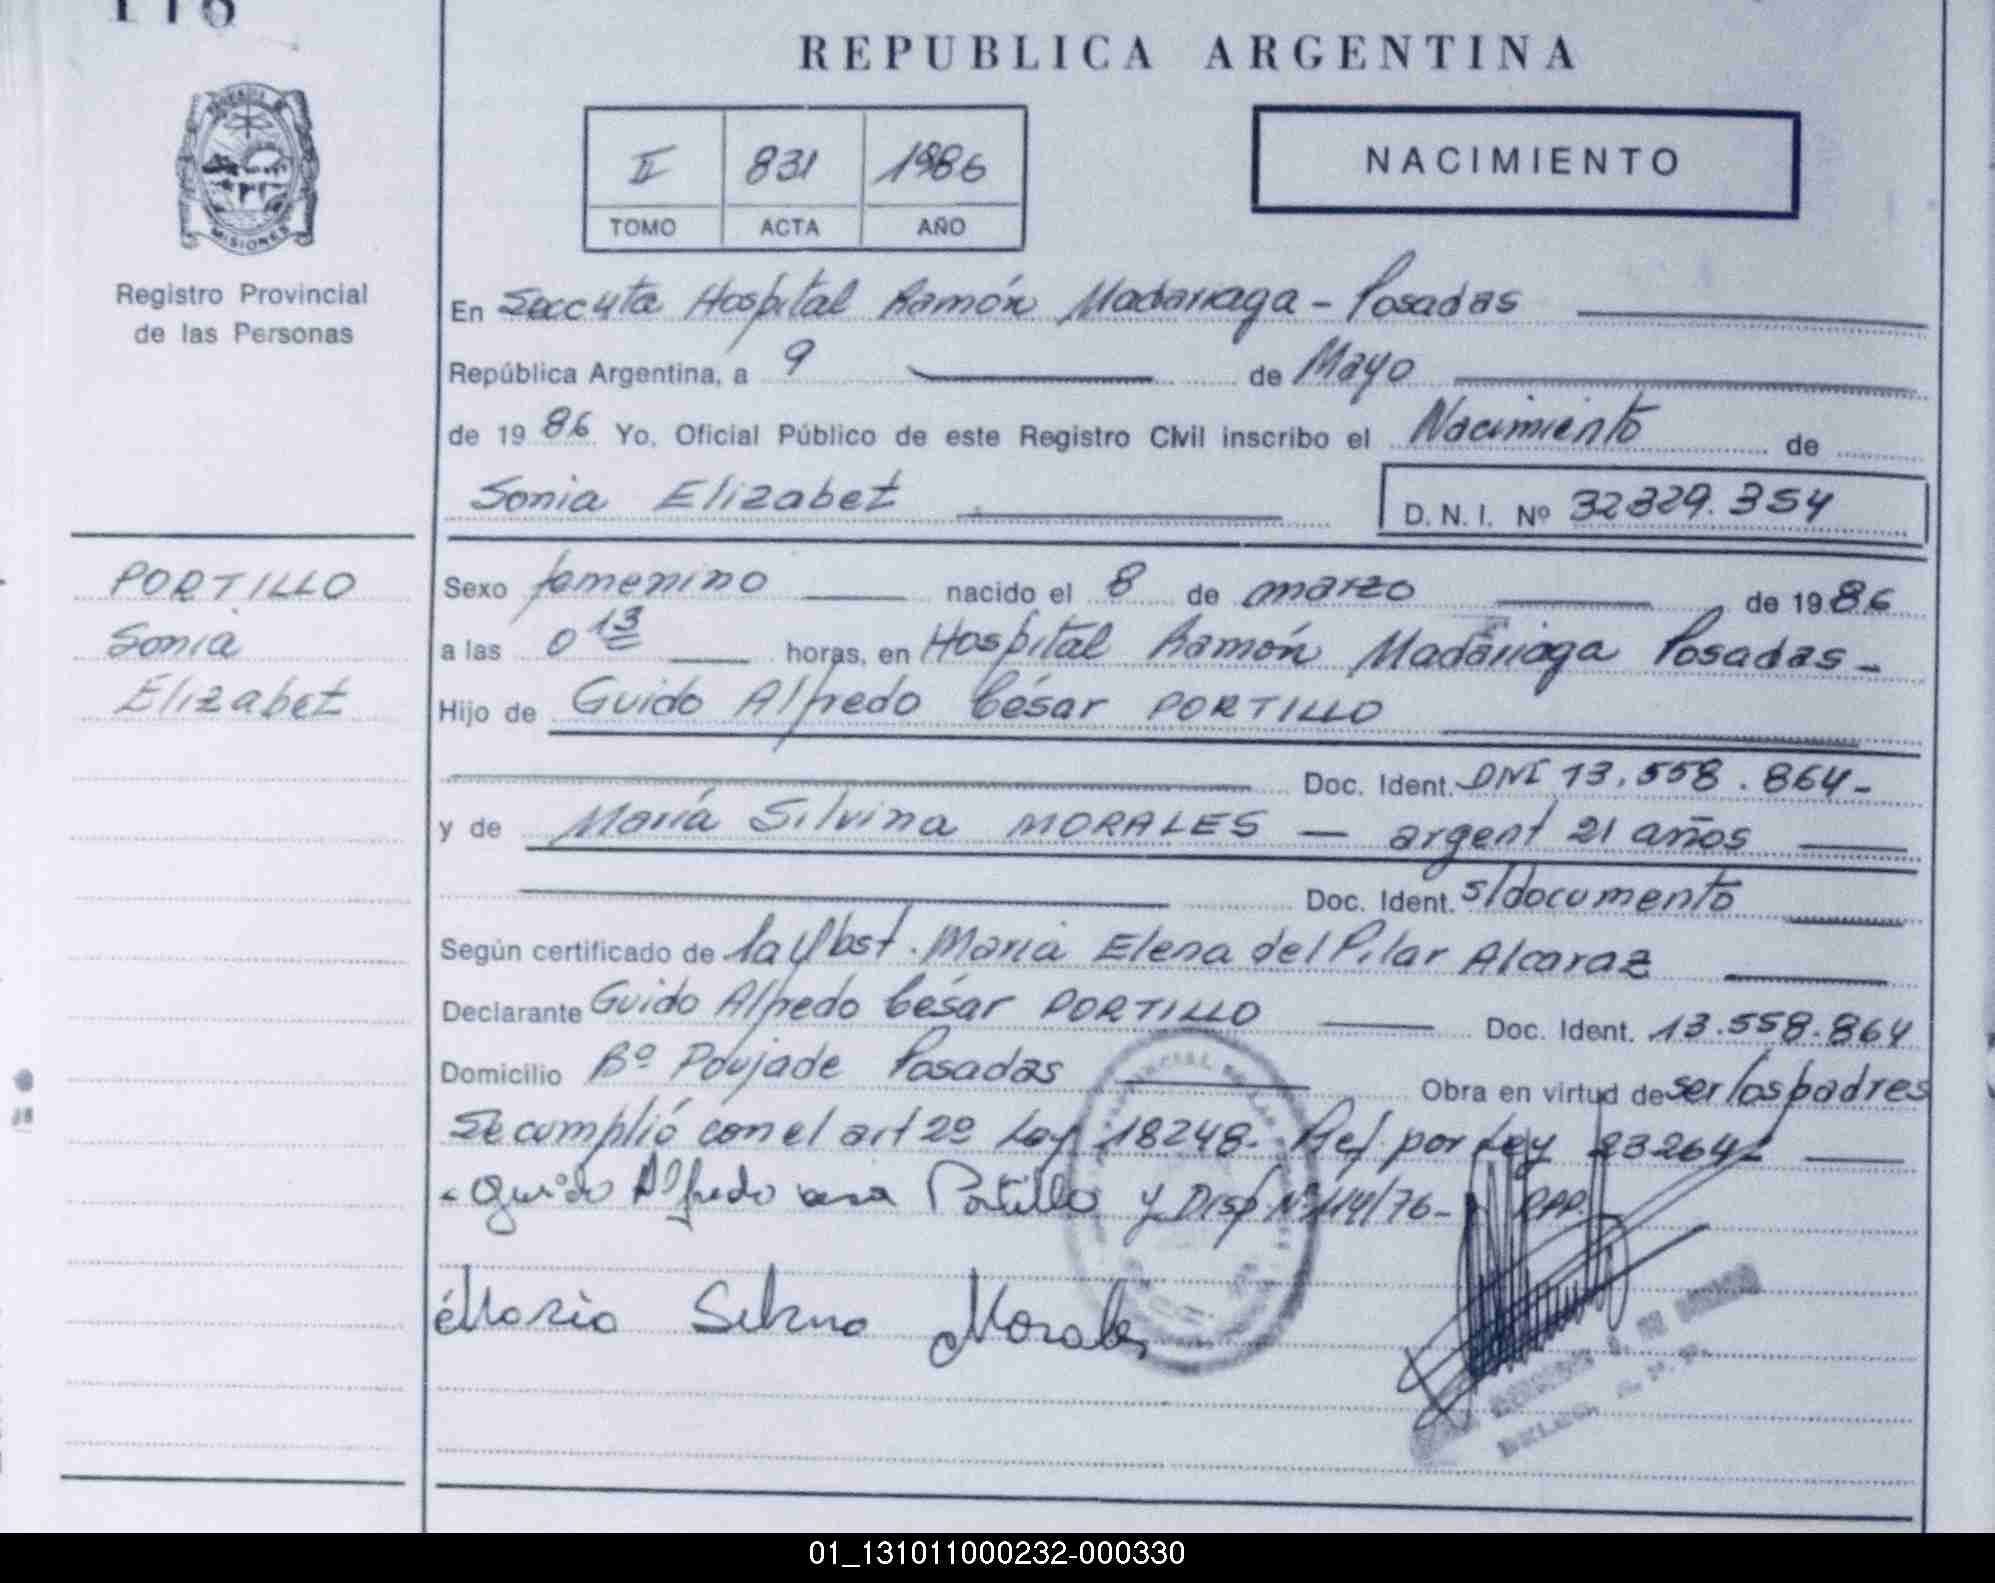 116
REPUBLICA ARGENTINA
MISIONES
Registro Provincial
de las Personas
II 831 1986
TOMO ACTA AÑO
NACIMIENTO
En Secc 4ta Hospital Ramón Madariaga - Posadas
República Argentina, a 9 de Mayo
de 1986 Yo, Oficial Público de este Registro Civil inscribo el Nacimiento de
Sonia Elizabet D. N. I. Nº 32329.354
PORTILLO
Sonia
Elizabet
Sexo femenino nacido el 8 de marzo de 1986
a las 0 13 horas, en Hospital Ramón Madariaga Posadas -
Hijo de Guido Alfredo César PORTILLO
Doc. Ident. DNI 13.558.864-
y de María Silvina MORALES — argent 21 años
Doc. Ident. s/documento
Según certificado de la Obst. María Elena del Pilar Alcaraz
Declarante Guido Alfredo César PORTILLO Doc. Ident. 13.558.864
Domicilio Bº Poujade Posadas Obra en virtud de ser los padres
Se cumplió con el art 2º Ley 18248- Ref. por Ley 23264
Guido Alfredo Portillo y Disp Nº 114/76- RPP.
Maria Silvina Morales
01_131011000232-000330